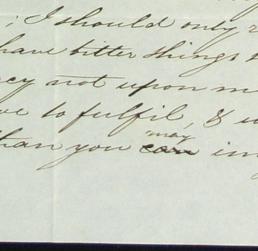 ; I should only
have bitter things
not upon
to fulfil, &
than you may can